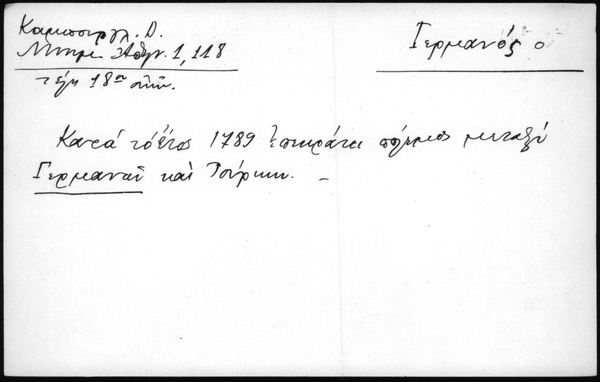 Καμπούρογλ. Δ.
Μνημ. Ἀθην. 1, 118
τέλη 18ου αἰῶν.
Γερμανός ο
Κατά τό ἔτος 1789 ἐπεκράτει πόλεμος μεταξύ
Γερμανῶν καί Τούρκων. –